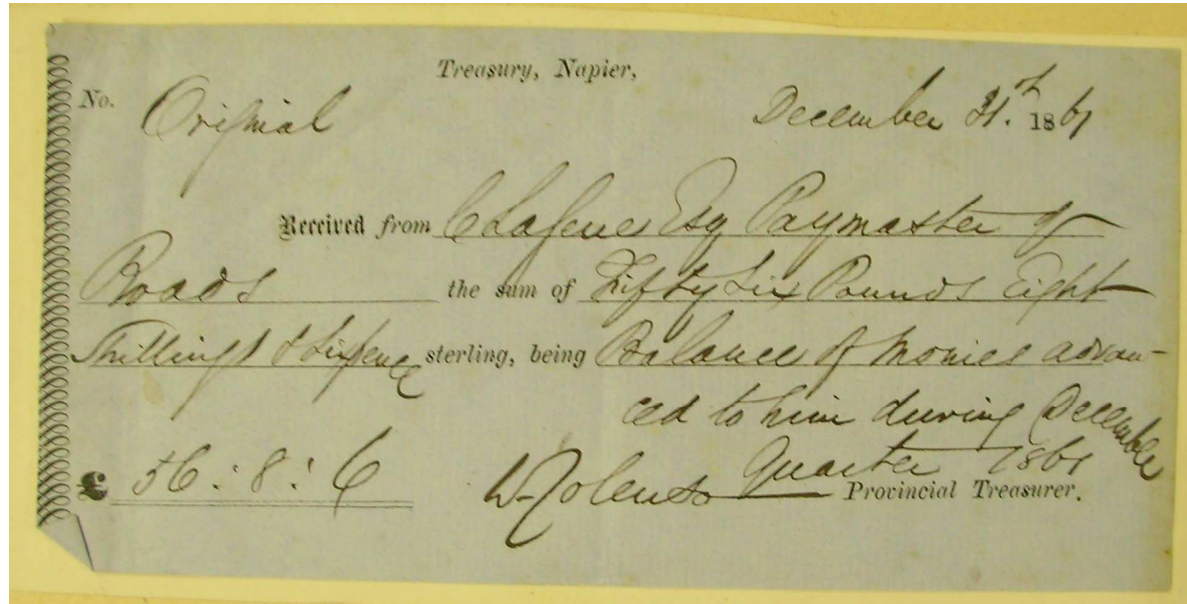 Treasury, Napier,
No. Original December 31st. 1861
Received from C Lafene Esq Paymaster of
Roads the sum of Fifty Six Pounds Eight
Shillings & Sixpence sterling, being Balance of Monies advan-
ced to him during December
Quarter 1861
£ 56 : 8 : 6 W Colenso Provincial Treasurer.